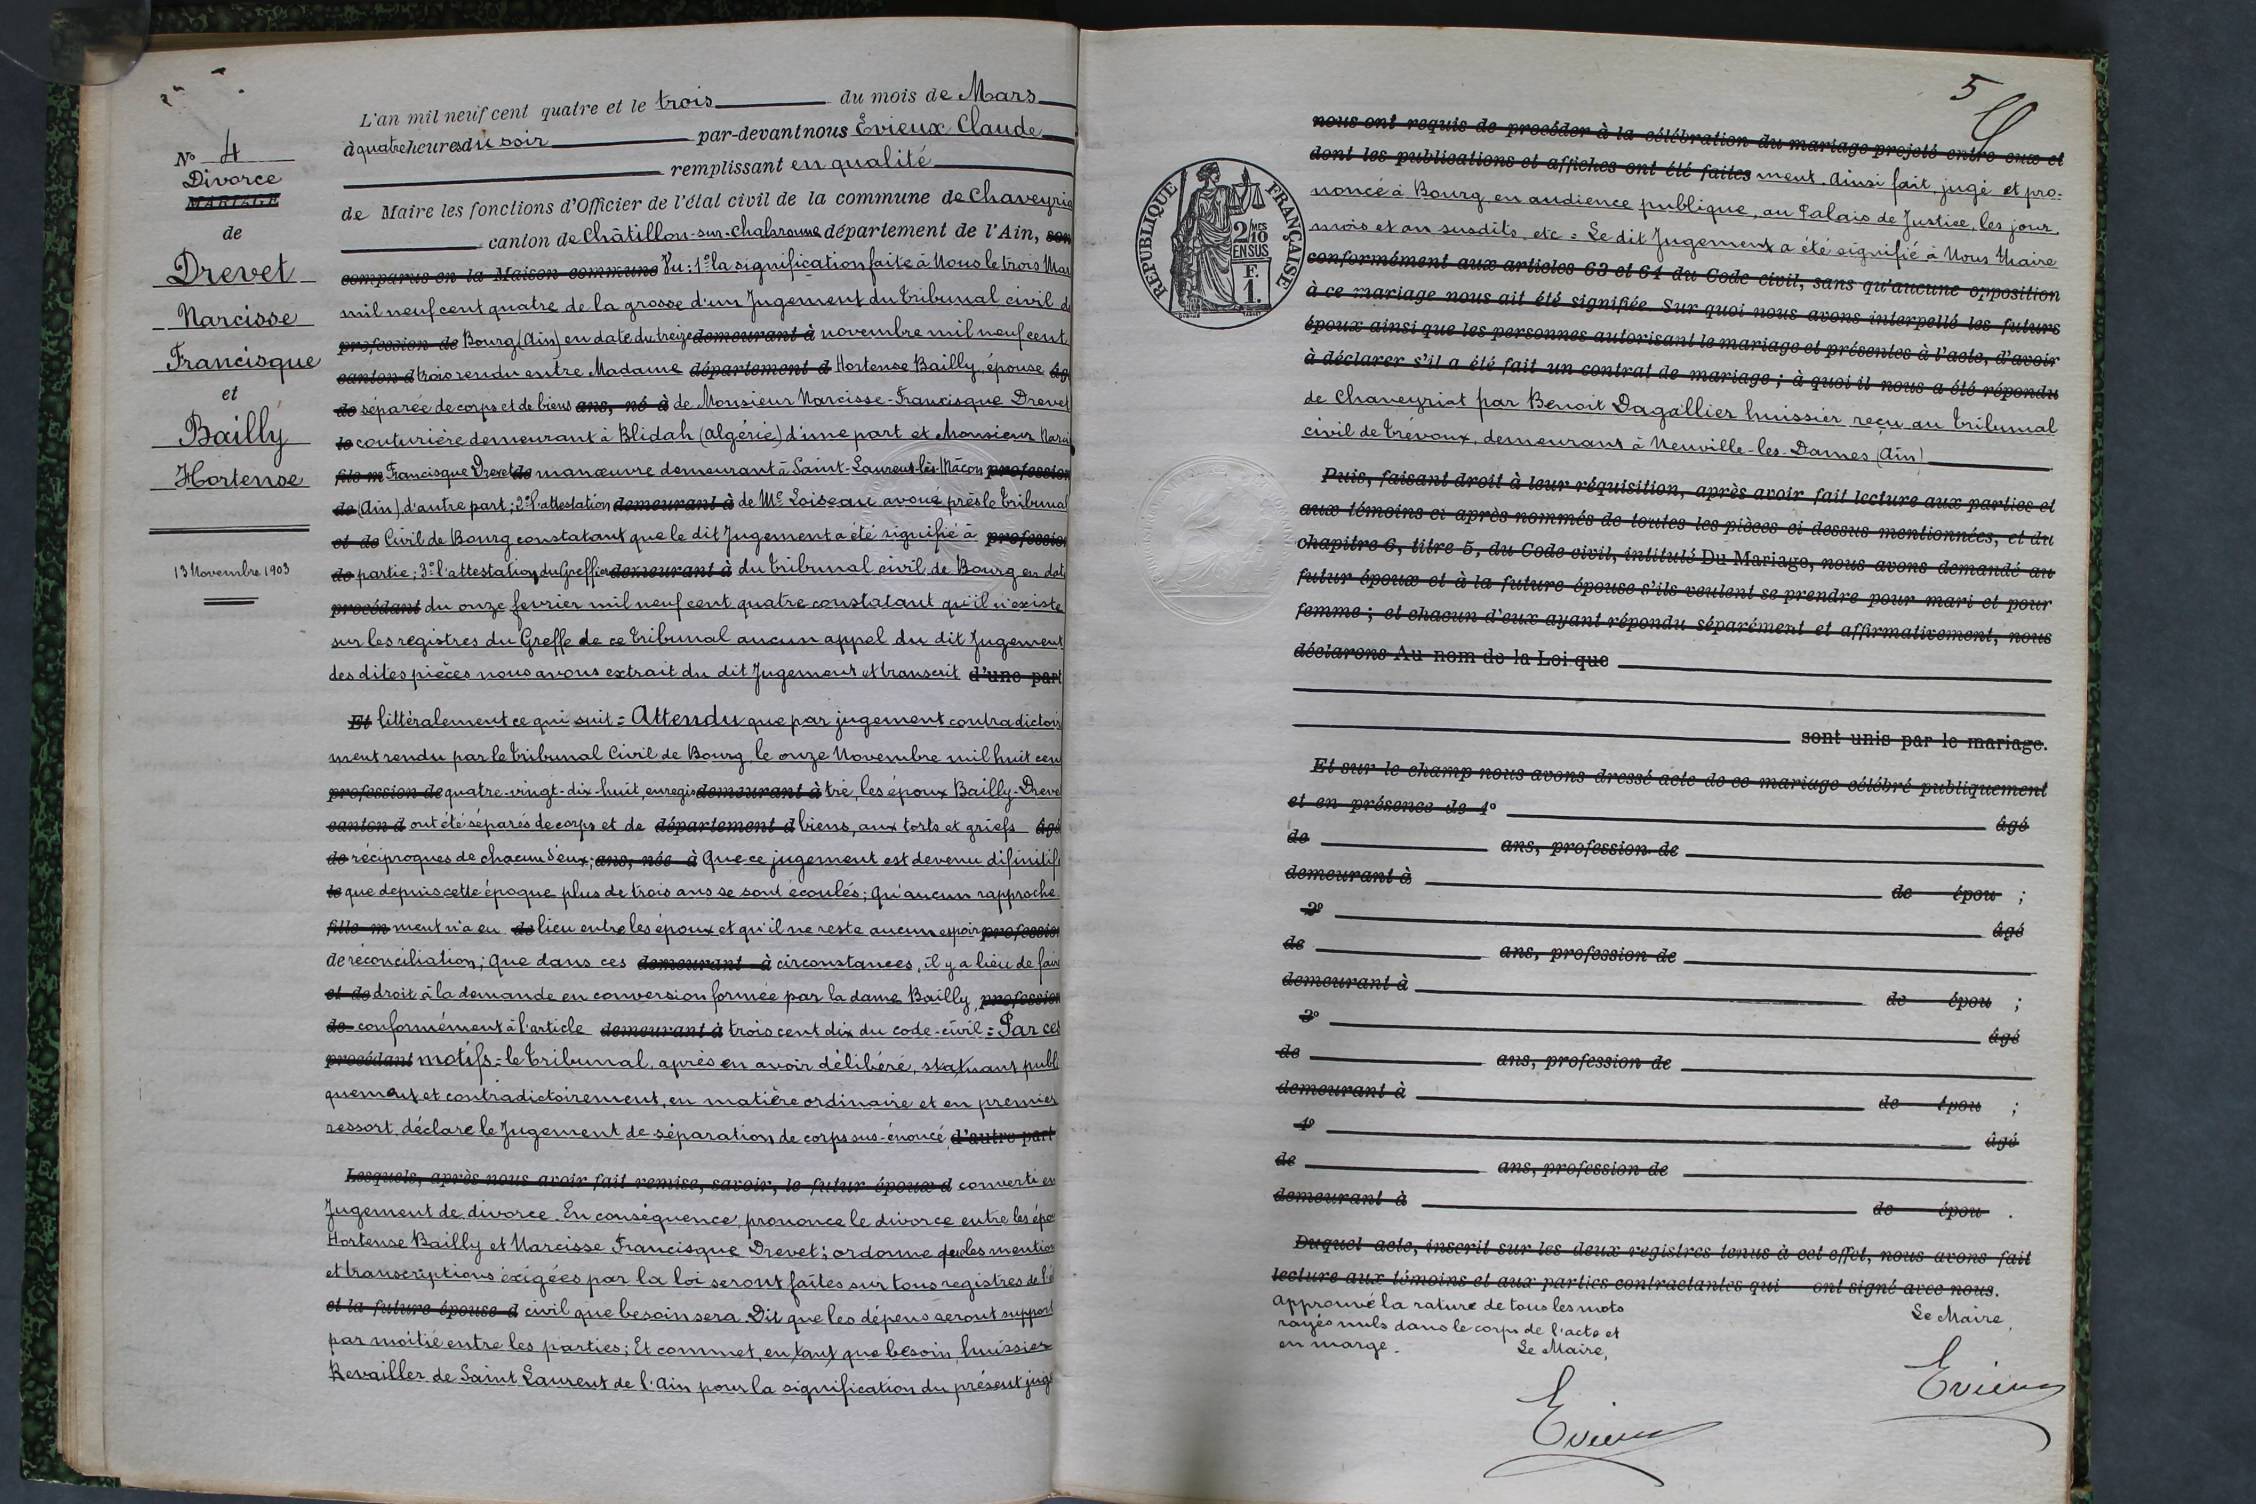 N° 4
Divorce
MARIAGE
de
Drevet
Narcisse
Francisque
et
Bailly
Hortense
13 Novembre 1903
L'an mil neuf cent quatre et le trois du mois de Mars
à quatre heures du soir par-devant nous Evieux Claude
remplissant en qualité
de Maire les fonctions d'Officier de l'état civil de la commune de Chaveyria
canton de Châtillon-sur-Chalaronne département de l'Ain, son
comparus en la Maison commune Vu: 1° la signification faite à Nous le trois Mar
mil neuf cent quatre de la grosse d'un Jugement du Tribunal civil de
profession de Bourg (Ain) en date du treize demeurant à novembre mil neuf cent
canton d trois rendu entre Madame département d Hortense Bailly, épouse âg
de séparée de corps et de biens ans, né à de Monsieur Narcisse-Francisque Drevet
le couturière demeurant à Blidah (Algérie) d'une part et Monsieur Narci
fils m Francisque Drevet de manœuvre demeurant à Saint-Laurent-lès-Mâcon profession
de (Ain) d'autre part; 2° l'attestation demeurant à de Me Loiseau avoué près le Tribunal
et de Civil de Bourg constatant que le dit Jugement a été signifié à profession
de partie; 3° l'attestation du Greffier demeurant à du Tribunal civil de Bourg en dat
procédant du onze fevrier mil neuf cent quatre constatant qu'il n'existe
sur les registres du Greffe de ce Tribunal aucun appel du dit Jugement
des dites pièces nous avons extrait du dit Jugement et transcrit d'une part
Et littéralement ce qui suit = Attendu que par jugement contradictoir
ment rendu par le Tribunal Civil de Bourg le onze Novembre mil huit cen
profession de quatre-vingt-dix-huit, enregis demeurant à tré, les époux Bailly-Dreve
canton d ont été séparés de corps et de département d biens, aux torts et griefs âgé
de réciproques de chacun d'eux; ans, née à Que ce jugement est devenu difinitif
le que depuis cette époque plus de trois ans se sont écoulés; Qu'aucun rapproche
fille m ment n'a eu de lieu entre les époux et qu'il ne reste aucun espoir profession
de réconciliation; Que dans ces demeurant à circonstances, il y a lieu de fair
et de droit à la demande en conversion formée par la dame Bailly, profession
de conformément à l'article demeurant à trois cent dix du code-civil = Par ces
procédant motifs = le Tribunal, après en avoir délibéré, statuant publi
quement et contradictoirement, en matière ordinaire et en premier
ressort, déclare le Jugement de séparation de corps sus-énoncé, d'autre part
Lesquels, après nous avoir fait remise, savoir, le futur époux d converti en
Jugement de divorce. En conséquence, prononce le divorce entre les épo
Hortense Bailly et Narcisse Francisque Drevet; ordonne que les mention
et transcriptions exigées par la loi seront faites sur tous registres de l'é
et la future épouse d civil que besoin sera. Dit que les dépens seront support
par moitié entre les parties; Et commet, en tant que besoin, huissier
Revailler de Saint Laurent de l'Ain pour la signification du présent juge
5
REPUBLIQUE FRANÇAISE
2/MES
10
EN SUS
F.
1.
nous ont requis de procéder à la célébration du mariage projeté entre eux et
dont les publications et affiches ont été faites ment. Ainsi fait, jugé et pro-
noncé à Bourg, en audience publique, au Palais de Justice, les jour,
mois et an susdits, etc = Le dit Jugement a été signifié à Nous Maire
conformément aux articles 63 et 64 du Code civil, sans qu'aucune opposition
à ce mariage nous ait été signifiée. Sur quoi nous avons interpellé les futurs
époux ainsi que les personnes autorisant le mariage et présentes à l'acte, d'avoir
à déclarer s'il a été fait un contrat de mariage; à quoi il nous a été répondu
de Chaveyriat par Benoit Dagallier huissier reçu au Tribunal
civil de Trévoux, demeurant à Neuville-les-Dames (Ain)
Puis, faisant droit à leur réquisition, après avoir fait lecture aux parties et
aux témoins ci après nommés de toutes les pièces ci dessus mentionnées, et du
chapitre 6, titre 5, du Code civil, intitulé Du Mariage, nous avons demandé au
futur époux et à la future épouse s'ils veulent se prendre pour mari et pour
femme; et chacun d'eux ayant répondu séparément et affirmativement, nous
déclarons Au nom de la Loi que
sont unis par le mariage.
Et sur le champ nous avons dressé acte de ce mariage célébré publiquement
et en présence de 1° âgé
de ans, profession de
demeurant à de épou ;
2° âgé
de ans, profession de
demeurant à de épou ;
3° âgé
de ans, profession de
demeurant à de épou ;
4° âgé
de ans, profession de
demeurant à de épou .
Duquel acte, inscrit sur les deux registres tenus à cet effet, nous avons fait
lecture aux témoins et aux parties contractantes qui ont signé avec nous.
Approuvé la rature de tous les mots
rayés nuls dans le corps de l'acte et
en marge.
Le Maire,
Evieux
Le Maire,
Evieux